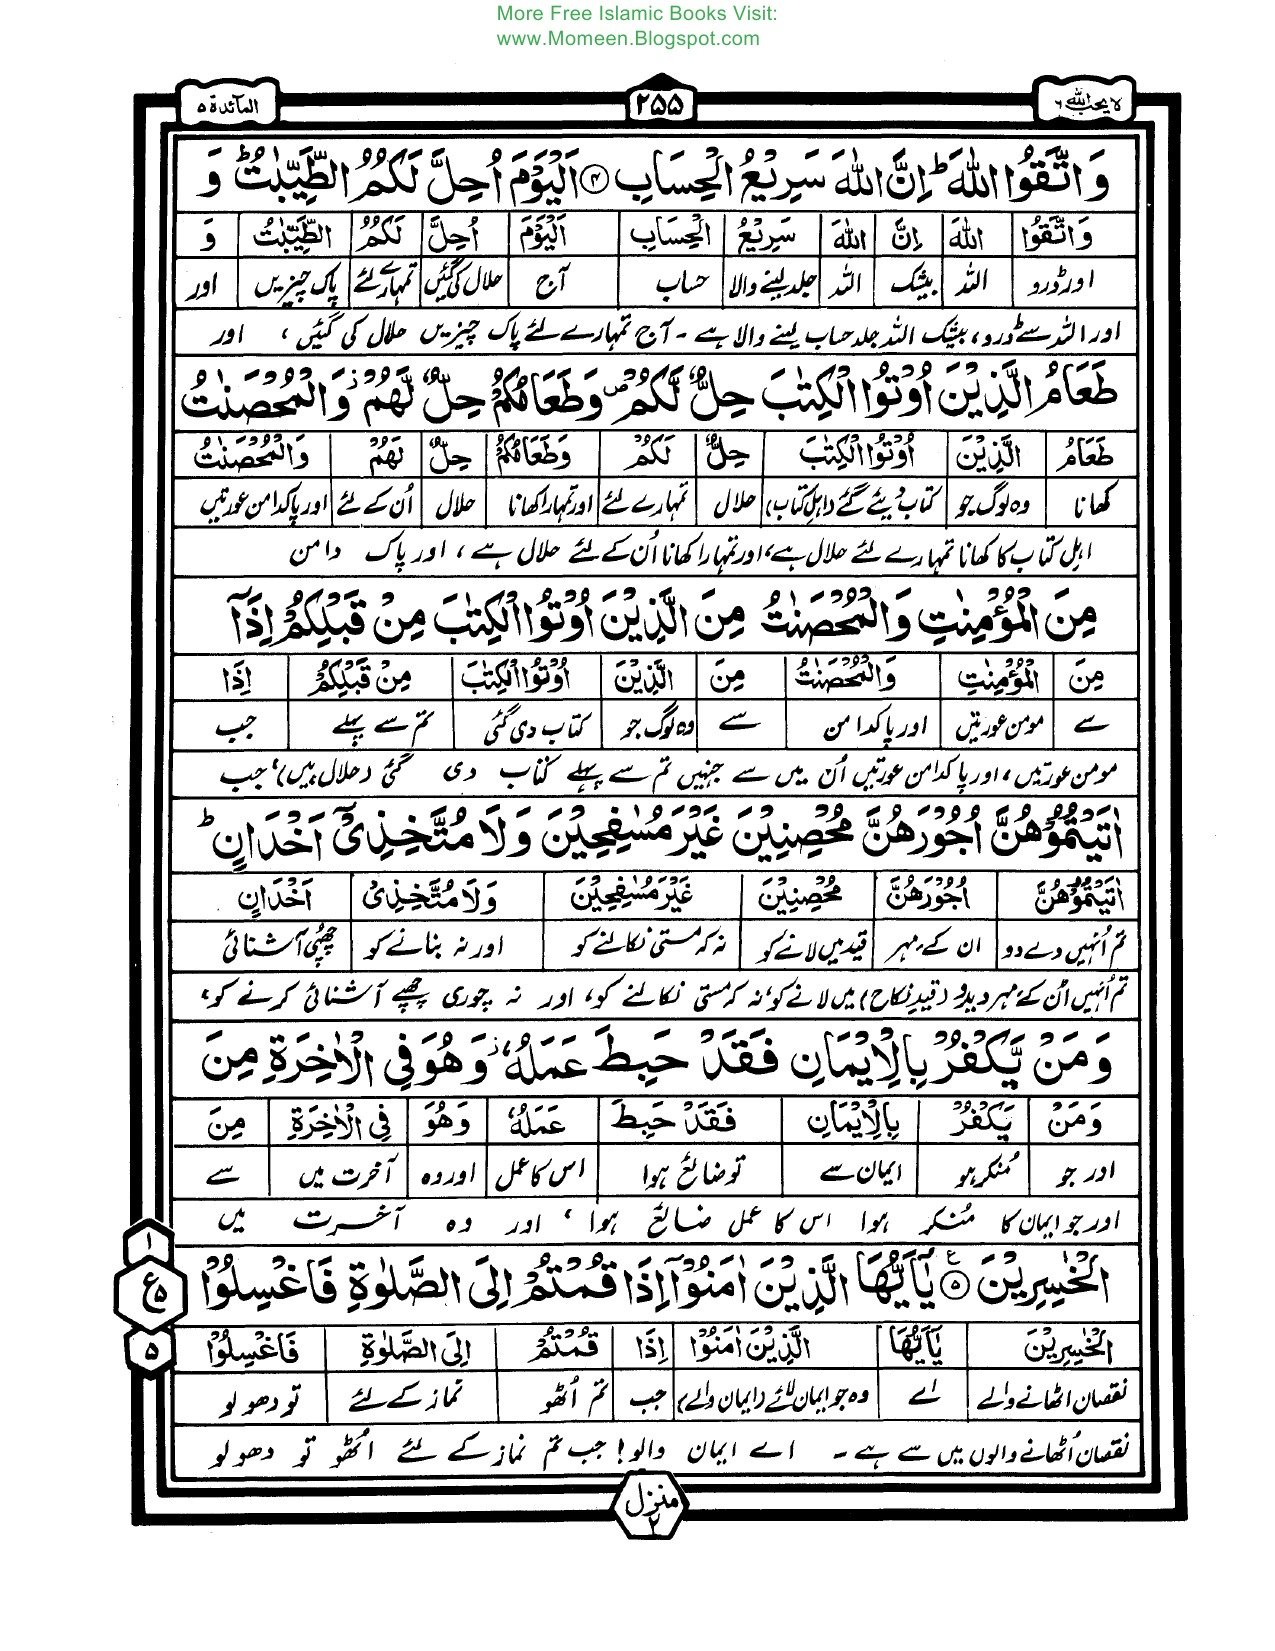 More Free Islamic Books Visit:
www.Momeen.Blogspot.com
لا یحب اللہ ٦ ٢٥٥ المآئدۃ ٥
وَاتَّقُوا اللّٰهَ ؕ اِنَّ اللّٰهَ سَرِيْعُ الْحِسَابِ ۴ اَلْيَوْمَ اُحِلَّ لَكُمُ الطَّيِّبٰتُ ؕ وَ
وَاتَّقُوا اللّٰهَ اِنَّ اللّٰهَ سَرِيْعُ الْحِسَابِ اَلْيَوْمَ اُحِلَّ لَكُمُ الطَّيِّبٰتُ وَ
اور ڈرو اللہ بیشک اللہ جلد لینے والا حساب آج حلال کی گئیں تمہارے لئے پاک چیزیں اور
اور اللہ سے ڈرو، بیشک اللہ جلد حساب لینے والا ہے ۔ آج تمہارے لئے پاک چیزیں حلال کی گئیں ، اور
طَعَامُ الَّذِيْنَ اُوْتُوا الْكِتٰبَ حِلٌّ لَّكُمْ ۪ وَطَعَامُكُمْ حِلٌّ لَّهُمْ ۫ وَالْمُحْصَنٰتُ
طَعَامُ الَّذِيْنَ اُوْتُوا الْكِتٰبَ حِلٌّ لَكُمْ وَطَعَامُكُمْ حِلٌّ لَهُمْ وَالْمُحْصَنٰتُ
کھانا وہ لوگ جو کتاب دیئے گئے (اہل کتاب) حلال تمہارے لئے اور تمہارا کھانا حلال اُن کے لئے اور پاکدامن عورتیں
اہل کتاب کا کھانا تمہارے لئے حلال ہے، اور تمہارا کھانا اُن کے لئے حلال ہے ، اور پاک دامن
مِنَ الْمُؤْمِنٰتِ وَالْمُحْصَنٰتُ مِنَ الَّذِيْنَ اُوْتُوا الْكِتٰبَ مِنْ قَبْلِكُمْ اِذَآ
مِنَ الْمُؤْمِنٰتِ وَالْمُحْصَنٰتُ مِنَ الَّذِيْنَ اُوْتُوا الْكِتٰبَ مِنْ قَبْلِكُمْ اِذَا
سے مومن عورتیں اور پاکدامن سے وہ لوگ جو کتاب دی گئی تم سے پہلے جب
مومن عورتیں ، اور پاکدامن عورتیں اُن میں سے جنہیں تم سے پہلے کتاب دی گئی (حلال ہیں) ، جب
اٰتَيْتُمُوْهُنَّ اُجُوْرَهُنَّ مُحْصِنِيْنَ غَيْرَ مُسٰفِحِيْنَ وَلَا مُتَّخِذِيْٓ اَخْدَانٍ ؕ
اٰتَيْتُمُوْهُنَّ اُجُوْرَهُنَّ مُحْصِنِيْنَ غَيْرَ مُسٰفِحِيْنَ وَلَا مُتَّخِذِيْٓ اَخْدَانٍ
تم اُنہیں دے دو ان کے مہر قید میں لانے کو نہ کہ مستی نکالنے کو اور نہ بنانے کو چھپی آشنائی
تم اُنہیں اُن کے مہر دیدو (قید نکاح) میں لانے کو، نہ کہ مستی نکالنے کو، اور نہ چوری چھپے آشنائی کرنے کو،
وَمَنْ يَّكْفُرْ بِالْاِيْمَانِ فَقَدْ حَبِطَ عَمَلُهٗ ۫ وَهُوَ فِي الْاٰخِرَةِ مِنَ
وَمَنْ يَكْفُرْ بِالْاِيْمَانِ فَقَدْ حَبِطَ عَمَلُهٗ وَهُوَ فِي الْاٰخِرَةِ مِنَ
اور جو مُنکر ہو ایمان سے تو ضائع ہوا اس کا عمل اور وہ آخرت میں سے
اور جو ایمان کا مُنکر ہوا اس کا عمل ضائع ہوا ، اور وہ آخرت میں
الْخٰسِرِيْنَ ۵ ع يٰٓاَيُّهَا الَّذِيْنَ اٰمَنُوْٓا اِذَا قُمْتُمْ اِلَى الصَّلٰوةِ فَاغْسِلُوْا
١
ع ٥
٥
الْخٰسِرِيْنَ يٰٓاَيُّهَا الَّذِيْنَ اٰمَنُوْا اِذَا قُمْتُمْ اِلَى الصَّلٰوةِ فَاغْسِلُوْا
نقصان اٹھانے والے اے وہ جو ایمان لائے (ایمان والے) جب تم اُٹھو نماز کے لئے تو دھو لو
نقصان اُٹھانے والوں میں سے ہے ۔ اے ایمان والو! جب تم نماز کے لئے اُٹھو تو دھو لو
منزل ٢